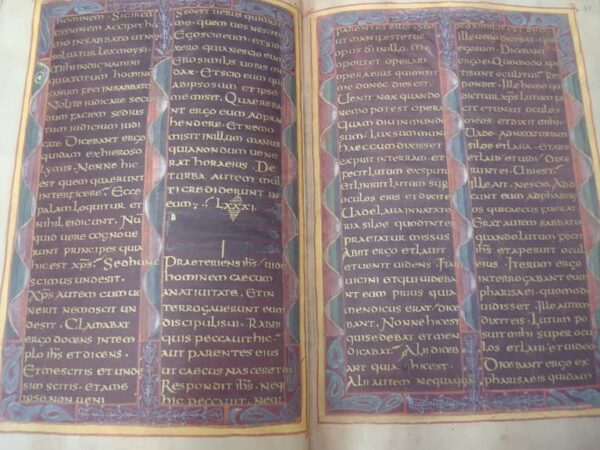 hominem. Si circum
cisionem accipit ho
mo in sabbato ut non
soluatur lex moysi.
mihi indignamini
quia totum hominem
sanum feci in sabbato
Nolite iudicare secun
dum faciem sed ius
tum iudicium iudi
cate. Dicebant ergo
quidam ex hieroso
lymis. Nonne hic
est quem quaerunt
interficere. Ecce
palam loquitur et
nihil ei dicunt. Nū
quid uere cognoue
runt principes quia
hic est xp̄s. Sed hunc
scimus unde sit.
Xp̄s autem cum ue
nerit nemo scit un
de sit. Clamabat
ergo docens in tem
plo ih̄s et dicens.
Et me scitis et unde
sim scitis. et a me
ipso non ueni
Sed est uerus qui
me quem uos nescitis
Ego scio eum. et si dix
ero quia nescio eum
ero similis uobis men
dax. Et scio eum quia
ab ipso sum et ipse
me misit. Quaereba
nt ergo eum adprae
hendere. Et nemo
misit in illum manus
quia nondum uene
rat hora eius. De
turba autem mul
ti crediderunt in
eum; LXXXI.
Praeteriens ih̄s uidit
hominem caecum
a natiuitate. Et in
terrogauerunt eum
discipuli sui. Rabbi
quis peccauit hic.
aut parentes eius
ut caecus nasceretur
Respondit ih̄s. Neque
hic peccauit. neque
parentes eius. Sed
ut manifestetur
opus dī in illo. Me
oportet operari
opera eius qui misit
me donec dies est
Uenit nox quando
nemo potest operari
Quam diu in mundo
sum. lux sum mundi
Haec cum dixisset
expuit in terram. et
fecit lutum ex sputo
et liniuit lutum sup
oculos eius et dixit ei
Uade laua in natato
ria siloe quod inter
praetatur missus
Abiit ergo et lauit
et uenit uidens. Itaq
uicini et qui uideba
nt eum prius quia
mendicus erat. dice
bant. Nonne hic est
qui sedebat et men
dicabat. Alii diceb
ant quia hic est.
Alii autem nequaquam
sed similis est ei
Ille uero dicebat quia
ego sum. Dicebant
ergo ei. Quomodo ap
erti sunt oculi tui. Res
pondit. Ille homo qui
dicitur ih̄s lutum fe
cit et unxit oculos
meos et dixit mihi
Uade ad natatoriam
siloe et laua. Et abii
et laui et uidi. Dixer
unt ei. Ubi est.
Ille ait. Nescio. Addu
cunt eum ad pharise
os qui caecus fuerat
Erat autem sabbatum
quando lutum fecit
ih̄s et aperuit oculos
eius. Iterum ergo
interrogabant eum
pharisaei quomodo
uidisset. Ille autem
dixit eis. Lutum po
suit mihi super ocu
los et laui et uideo.
Dicebant ergo ex
pharisaeis quidam